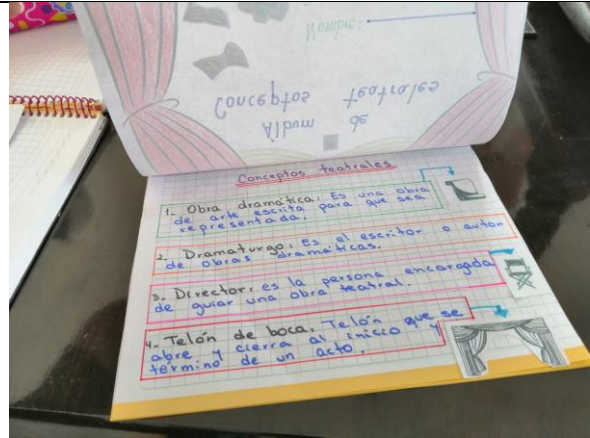 Nombre:
Conceptos teatrales
Álbum de
Conceptos teatrales
1.- Obra dramática: Es una obra
de arte escrita para que sea
representada.
2. Dramaturgo: Es el escritor o autor
de obras dramáticas.
3. Director: es la persona encargada
de guiar una obra teatral.
4.- Telón de boca: Telón que se
abre y cierra al inicio y
término de un acto.